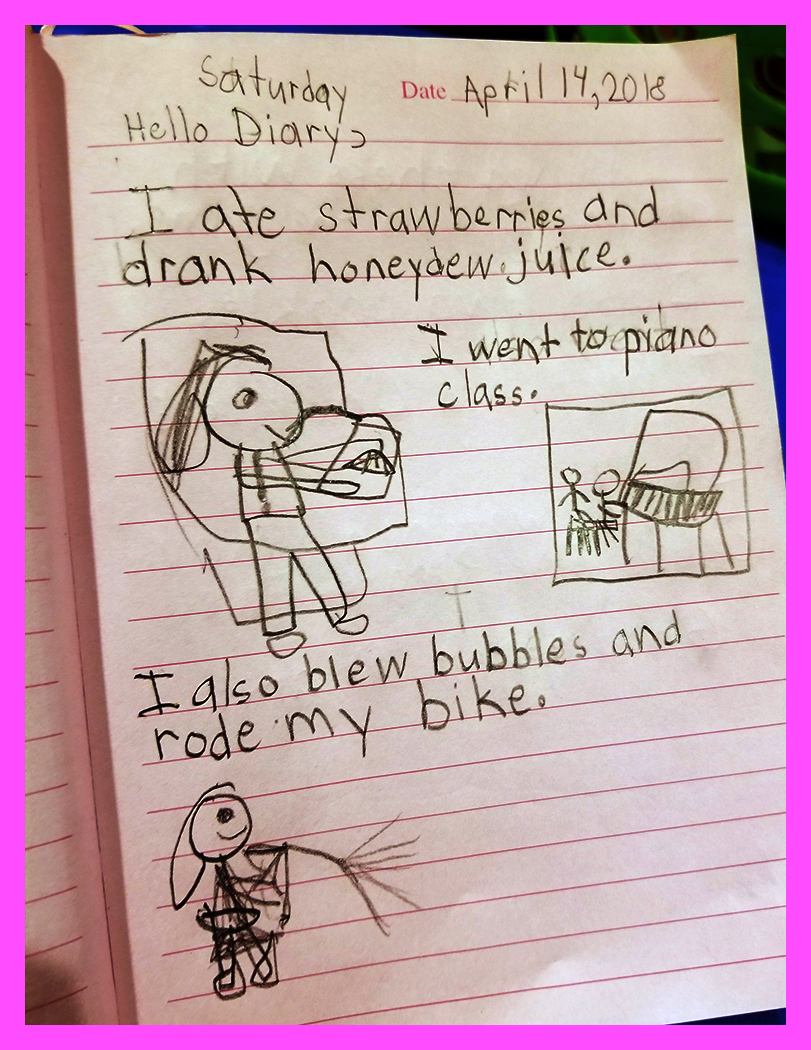 Saturday
Date April 14, 2018
Hello Diary,
I ate strawberries and
drank honeydew juice.
I went to piano
class.
I also blew bubbles and
rode my bike.